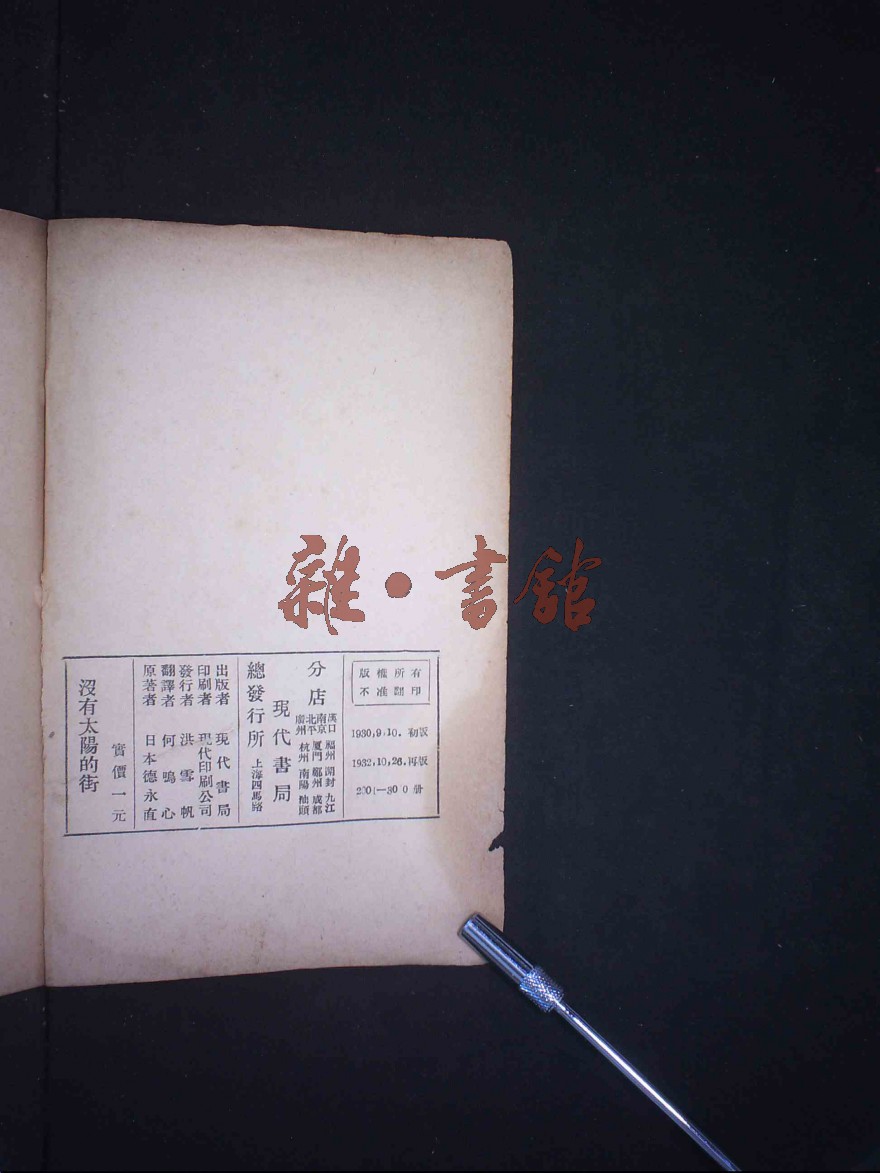 雜·書館
版權所有
不准翻印
1930,9,10. 初版
1932,10,26.再版
分店
漢口 福州 開封 九江
南京 厦門 鄭州 成都
北平 杭州 南陽 汕頭
廣州
現代書局
總發行所 上海四馬路
出版者 現代書局
印刷者 現代印刷公司
發行者 洪雪帆
翻譯者 何鳴心
原著者 日本德永直
實價一元
沒有太陽的街